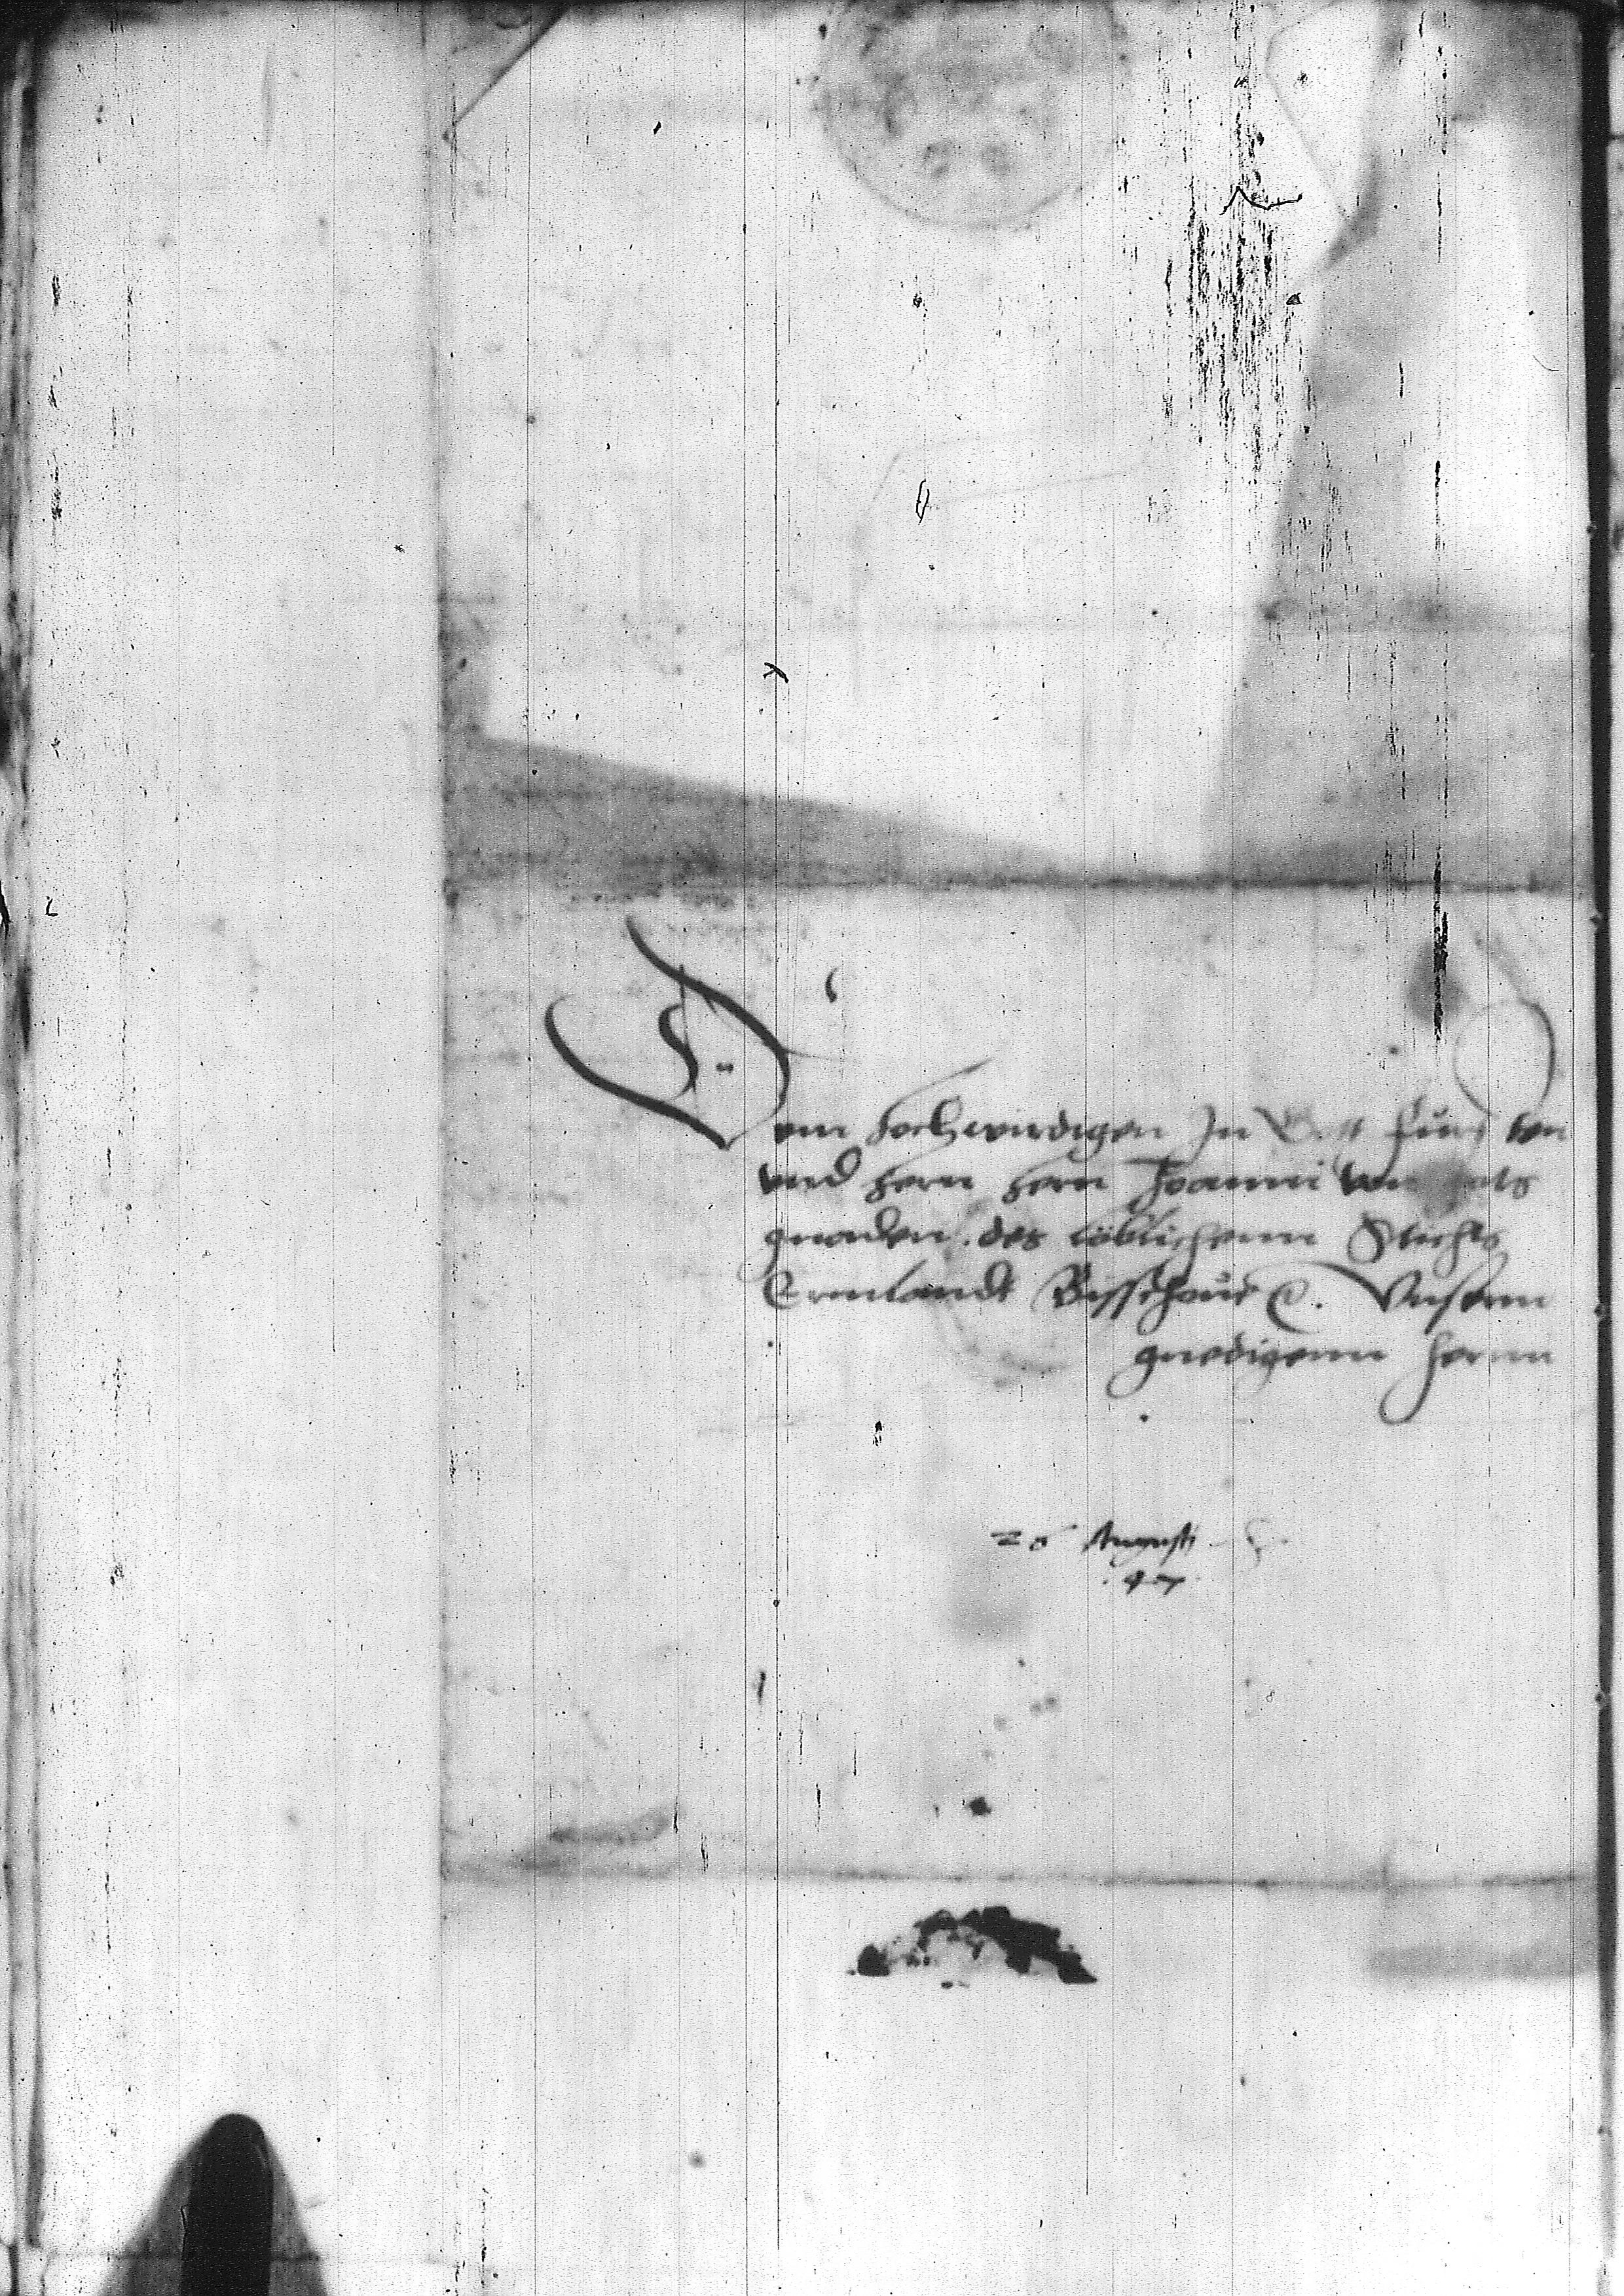 Dem hochwirdigen In Gott furs ten
vnd hern hern Joanni von
gnaden. des löblichenn Stichts
Ermlandt Bisschoue etc. Vnserm
gnedigenn hernn
20 Augusti
.47.